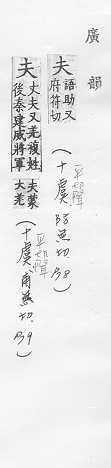 廣韻
夫 語助又府符切
(十虞 防無切 38)
平聲
夫 丈夫又羌複姓夫蒙後秦建威將軍大羌
(十虞 甫無切 39)
平聲